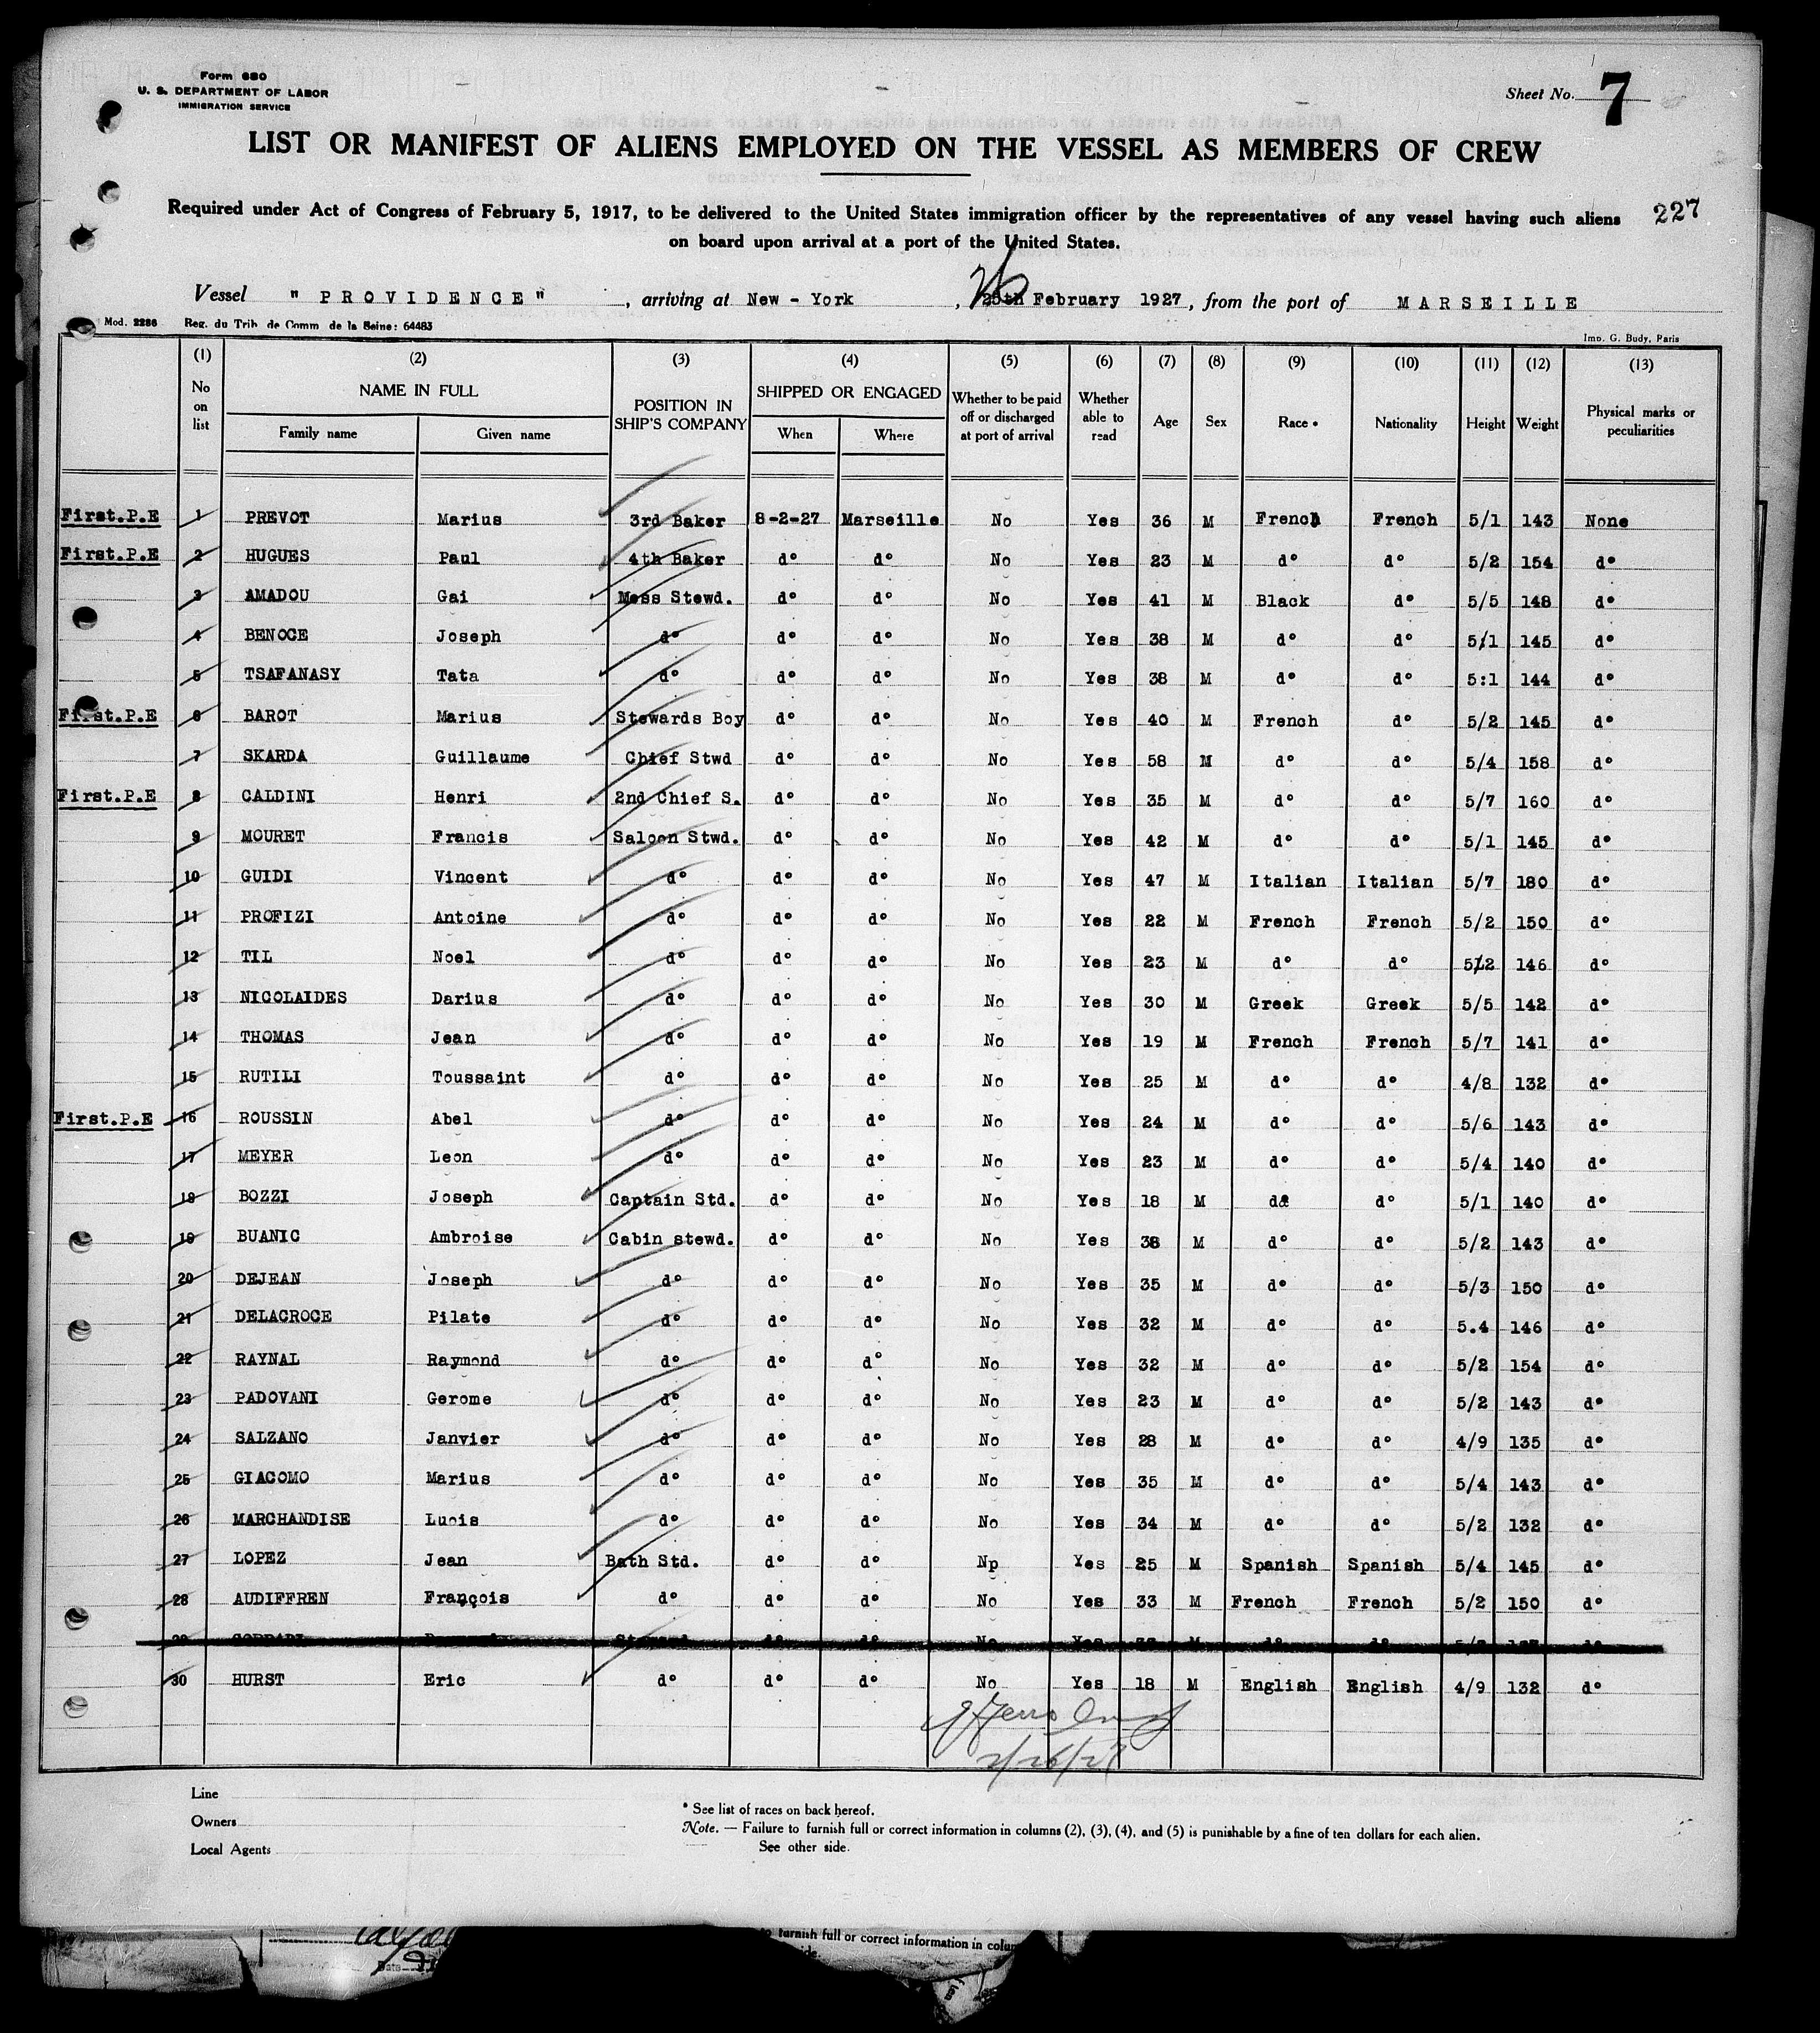 Form 680
U. S. DEPARTMENT OF LABOR
IMMIGRATION SERVICE
Sheet No. 7
LIST OR MANIFEST OF ALIENS EMPLOYED ON THE VESSEL AS MEMBERS OF CREW
Required under Act of Congress of February 5, 1917, to be delivered to the United States immigration officer by the representatives of any vessel having such aliens
227
on board upon arrival at a port of the United States.
26
Vessel "PROVIDENCE", arriving at New-York, 25th February 1927, from the port of MARSEILLE
Mod. 2286 Reg. du Trib. de Comm. de la Seine: 64483 Imp. G. Budy, Paris
(1) (2) (3) (4) (5) (6) (7) (8) (9) (10) (11) (12) (13)
No on list NAME IN FULL Family name Given name POSITION IN SHIP'S COMPANY SHIPPED OR ENGAGED When Where Whether to be paid off or discharged at port of arrival Whether able to read Age Sex Race • Nationality Height Weight Physical marks or peculiarities
First.P.E 1 PREVOT Marius 3rd Baker 8-2-27 Marseille No Yes 36 M French French 5/1 143 None
First.P.E 2 HUGUES Paul 4th Baker d° d° No Yes 23 M d° d° 5/2 154 d°
3 AMADOU Gai Mess Stewd. d° d° No Yes 41 M Black d° 5/5 148 d°
4 BENOCE Joseph d° d° d° No Yes 38 M d° d° 5/1 145 d°
5 TSAFANASY Tata d° d° d° No Yes 38 M d° d° 5:1 144 d°
First.P.E 6 BAROT Marius Stewards Boy d° d° No Yes 40 M French d° 5/2 145 d°
7 SKARDA Guillaume Chief Stwd d° d° No Yes 58 M d° d° 5/4 158 d°
First.P.E 8 CALDINI Henri 2nd Chief S. d° d° No Yes 35 M d° d° 5/7 160 d°
9 MOURET Francis Saloon Stwd. d° d° No Yes 42 M d° d° 5/1 145 d°
10 GUIDI Vincent d° d° d° No Yes 47 M Italian Italian 5/7 180 d°
11 PROFIZI Antoine d° d° d° No Yes 22 M French French 5/2 150 d°
12 TIL Noel d° d° d° No Yes 23 M d° d° 5/2 146 d°
13 NICOLAIDES Darius d° d° d° No Yes 30 M Greek Greek 5/5 142 d°
14 THOMAS Jean d° d° d° No Yes 19 M French French 5/7 141 d°
15 RUTILI Toussaint d° d° d° No Yes 25 M d° d° 4/8 132 d°
First.P.E 16 ROUSSIN Abel d° d° d° No Yes 24 M d° d° 5/6 143 d°
17 MEYER Leon d° d° d° No Yes 23 M d° d° 5/4 140 d°
18 BOZZI Joseph Captain Std. d° d° No Yes 18 M d° d° 5/1 140 d°
19 BUANIC Ambroise Cabin stewd. d° d° No Yes 38 M d° d° 5/2 143 d°
20 DEJEAN Joseph d° d° d° No Yes 35 M d° d° 5/3 150 d°
21 DELACROCE Pilate d° d° d° No Yes 32 M d° d° 5.4 146 d°
22 RAYNAL Raymond d° d° d° No Yes 32 M d° d° 5/2 154 d°
23 PADOVANI Gerome d° d° d° No Yes 23 M d° d° 5/2 143 d°
24 SALZANO Janvier d° d° d° No Yes 28 M d° d° 4/9 135 d°
25 GIACOMO Marius d° d° d° No Yes 35 M d° d° 5/4 143 d°
26 MARCHANDISE Lucis d° d° d° No Yes 34 M d° d° 5/2 132 d°
27 LOPEZ Jean Bath Std. d° d° Np Yes 25 M Spanish Spanish 5/4 145 d°
28 AUDIFFREN François d° d° d° No Yes 33 M French French 5/2 150 d°
30 HURST Eric d° d° d° No Yes 18 M English English 4/9 132 d°
2/26/27
Line
Owners
Local Agents
* See list of races on back hereof.
Note. — Failure to furnish full or correct information in columns (2), (3), (4), and (5) is punishable by a fine of ten dollars for each alien.
See other side.
furnish full or correct information in colum
side.
Date